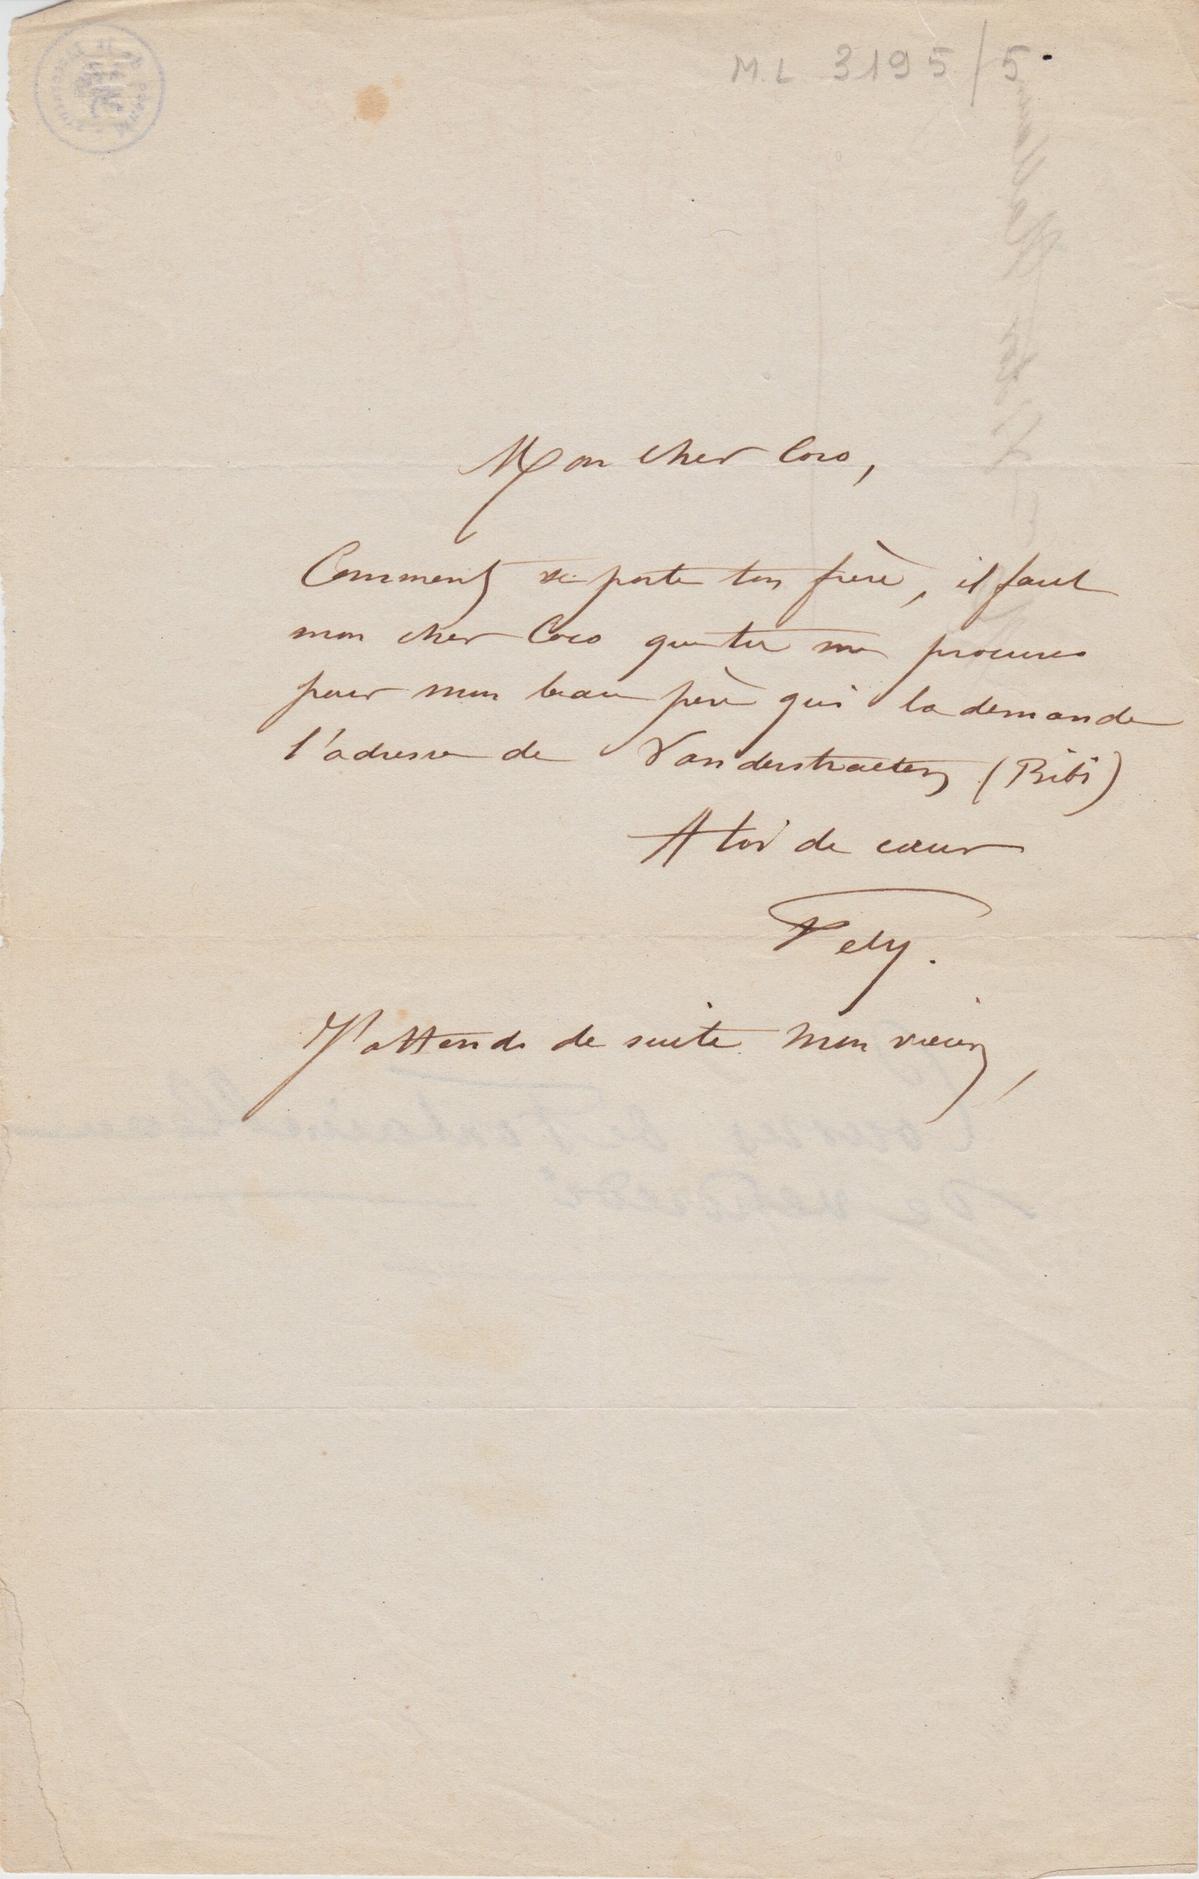 M.L 3195/5
Mon cher Coco,
Comment se porte ton frère, il faut
mon cher Coco que tu me procures
pour mon beau père qui la demande
l'adresse de Vanderstraeten (Bibi)
A toi de cœur
Fely.
J'attends de suite mon vieux,
Courses de Fontainebleau
De vendredi